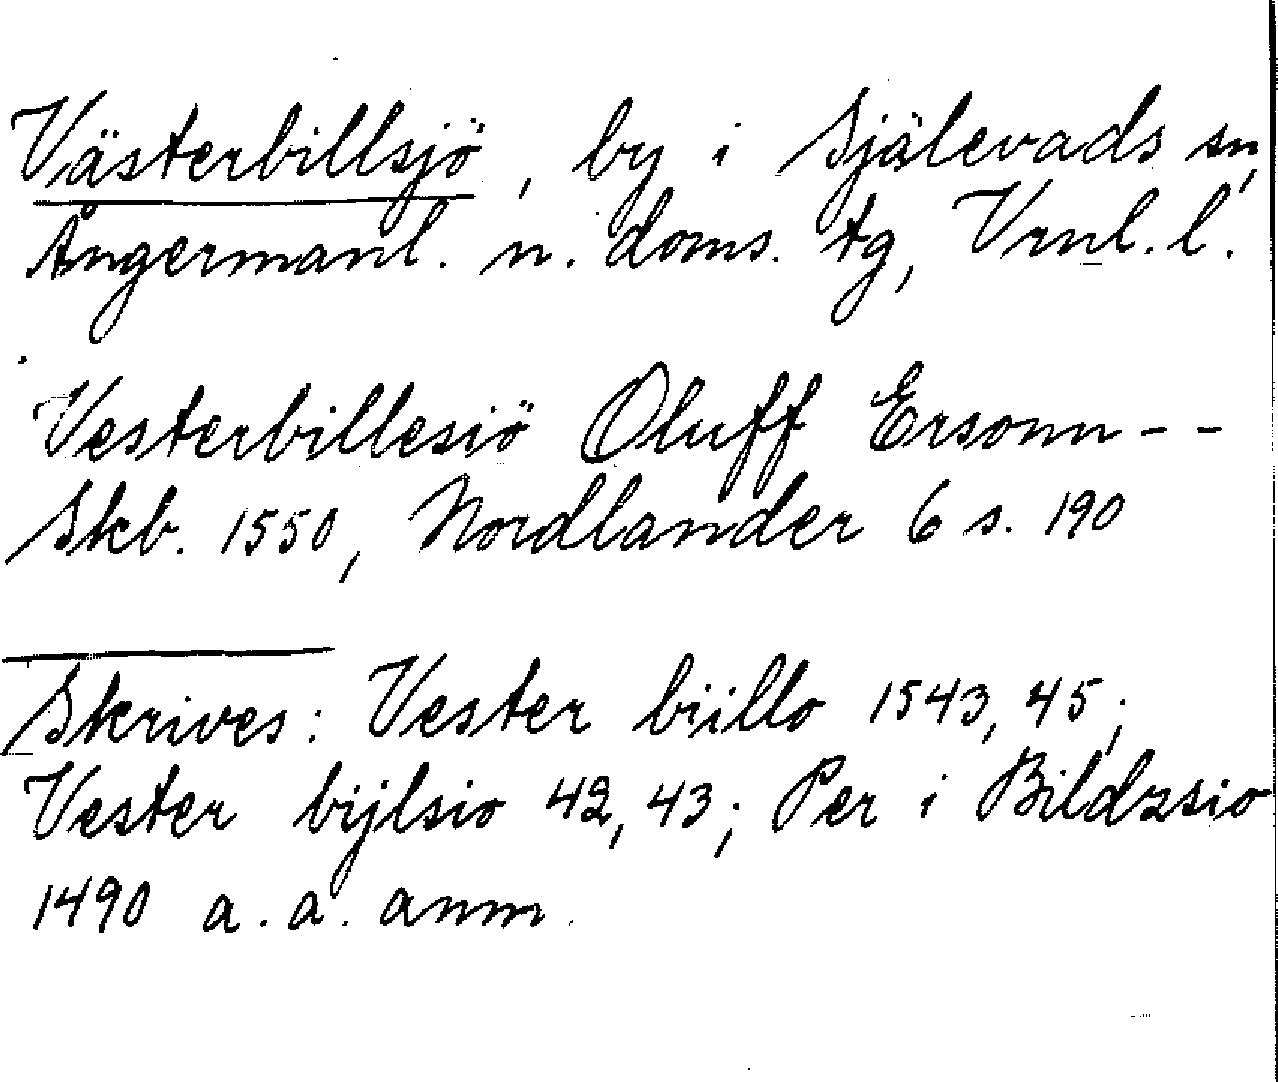 Västerbillsjö, by i Själevads sn,
Ångermanl. n. doms. tg, Vrnl. l.
Vesterbillesiö Oluff Ersonn - -
Skb. 1550, Nordlander 6 s. 190
Skrives: Vester biillo 1543, 45;
Vester bijlsio 42, 43; Per i Bildzsio
1490 a. a. anm.